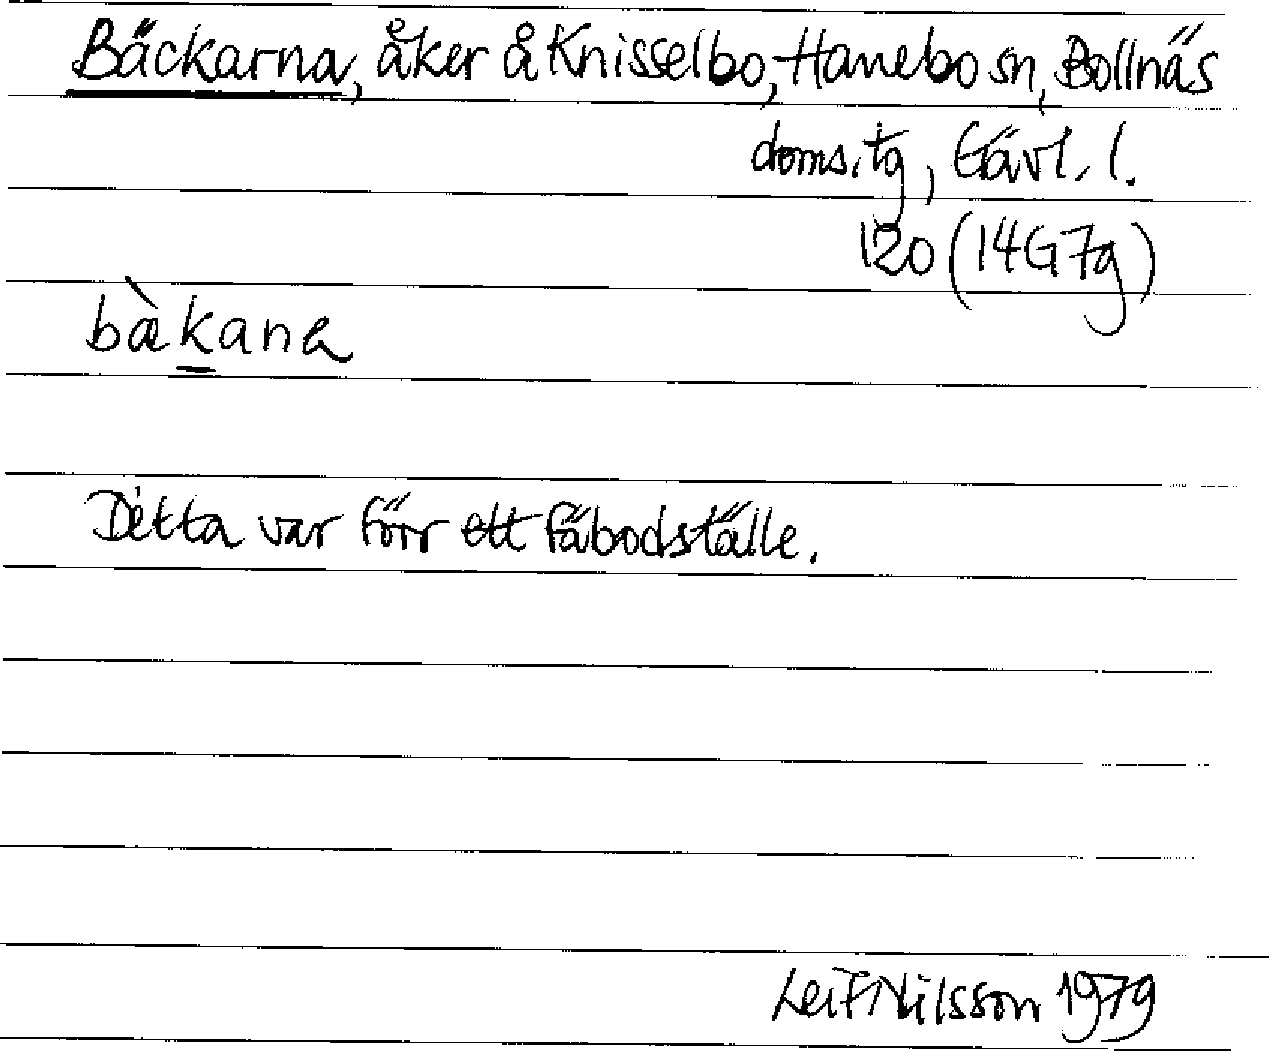 Bäckarna, åker å Knisselbo, Hanebo sn, Bollnäs
doms.tg, Gävl. l.
120 (14G7g)
bæ̀kana
Detta var förr ett fäbodställe.
Leif Nilsson 1979